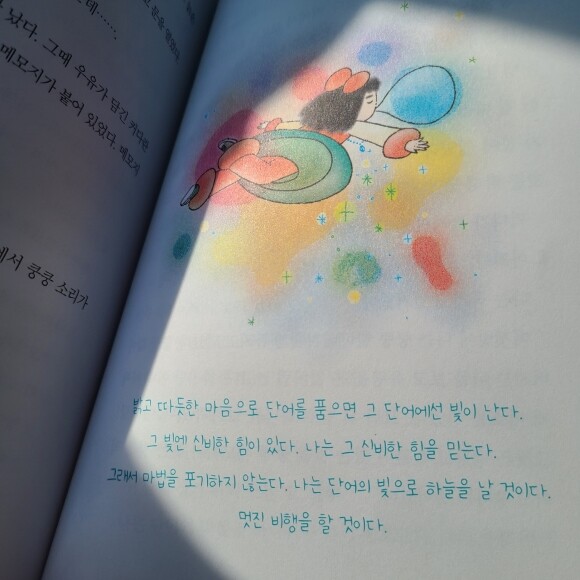 데……
났다. 그때 우유가 담긴 커다란
메모지가 붙어 있었다. 메모지
에서 쿵쿵 소리가
밝고 따듯한 마음으로 단어를 품으면 그 단어에선 빛이 난다.
그 빛엔 신비한 힘이 있다. 나는 그 신비한 힘을 믿는다.
그래서 마법을 포기하지 않는다. 나는 단어의 빛으로 하늘을 날 것이다.
멋진 비행을 할 것이다.